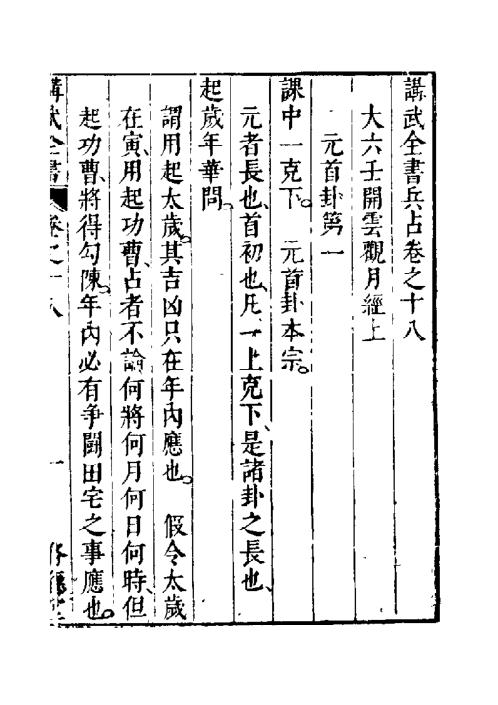 講武全書兵占卷之十八
大六壬開雲觀月經上
元首卦第一
課中一克下。 元首卦本宗。
元者長也、首初也、凡一上克下、是諸卦之長也、
起歲年華問。
謂用起太歲。其吉凶只在年內應也。 假令太歲
在寅、用起功曹、占者不論何將何月何日何時、但
起功曹、將得勾陳。年內必有争鬪田宅之事應也。
講武全書 卷之十八 一